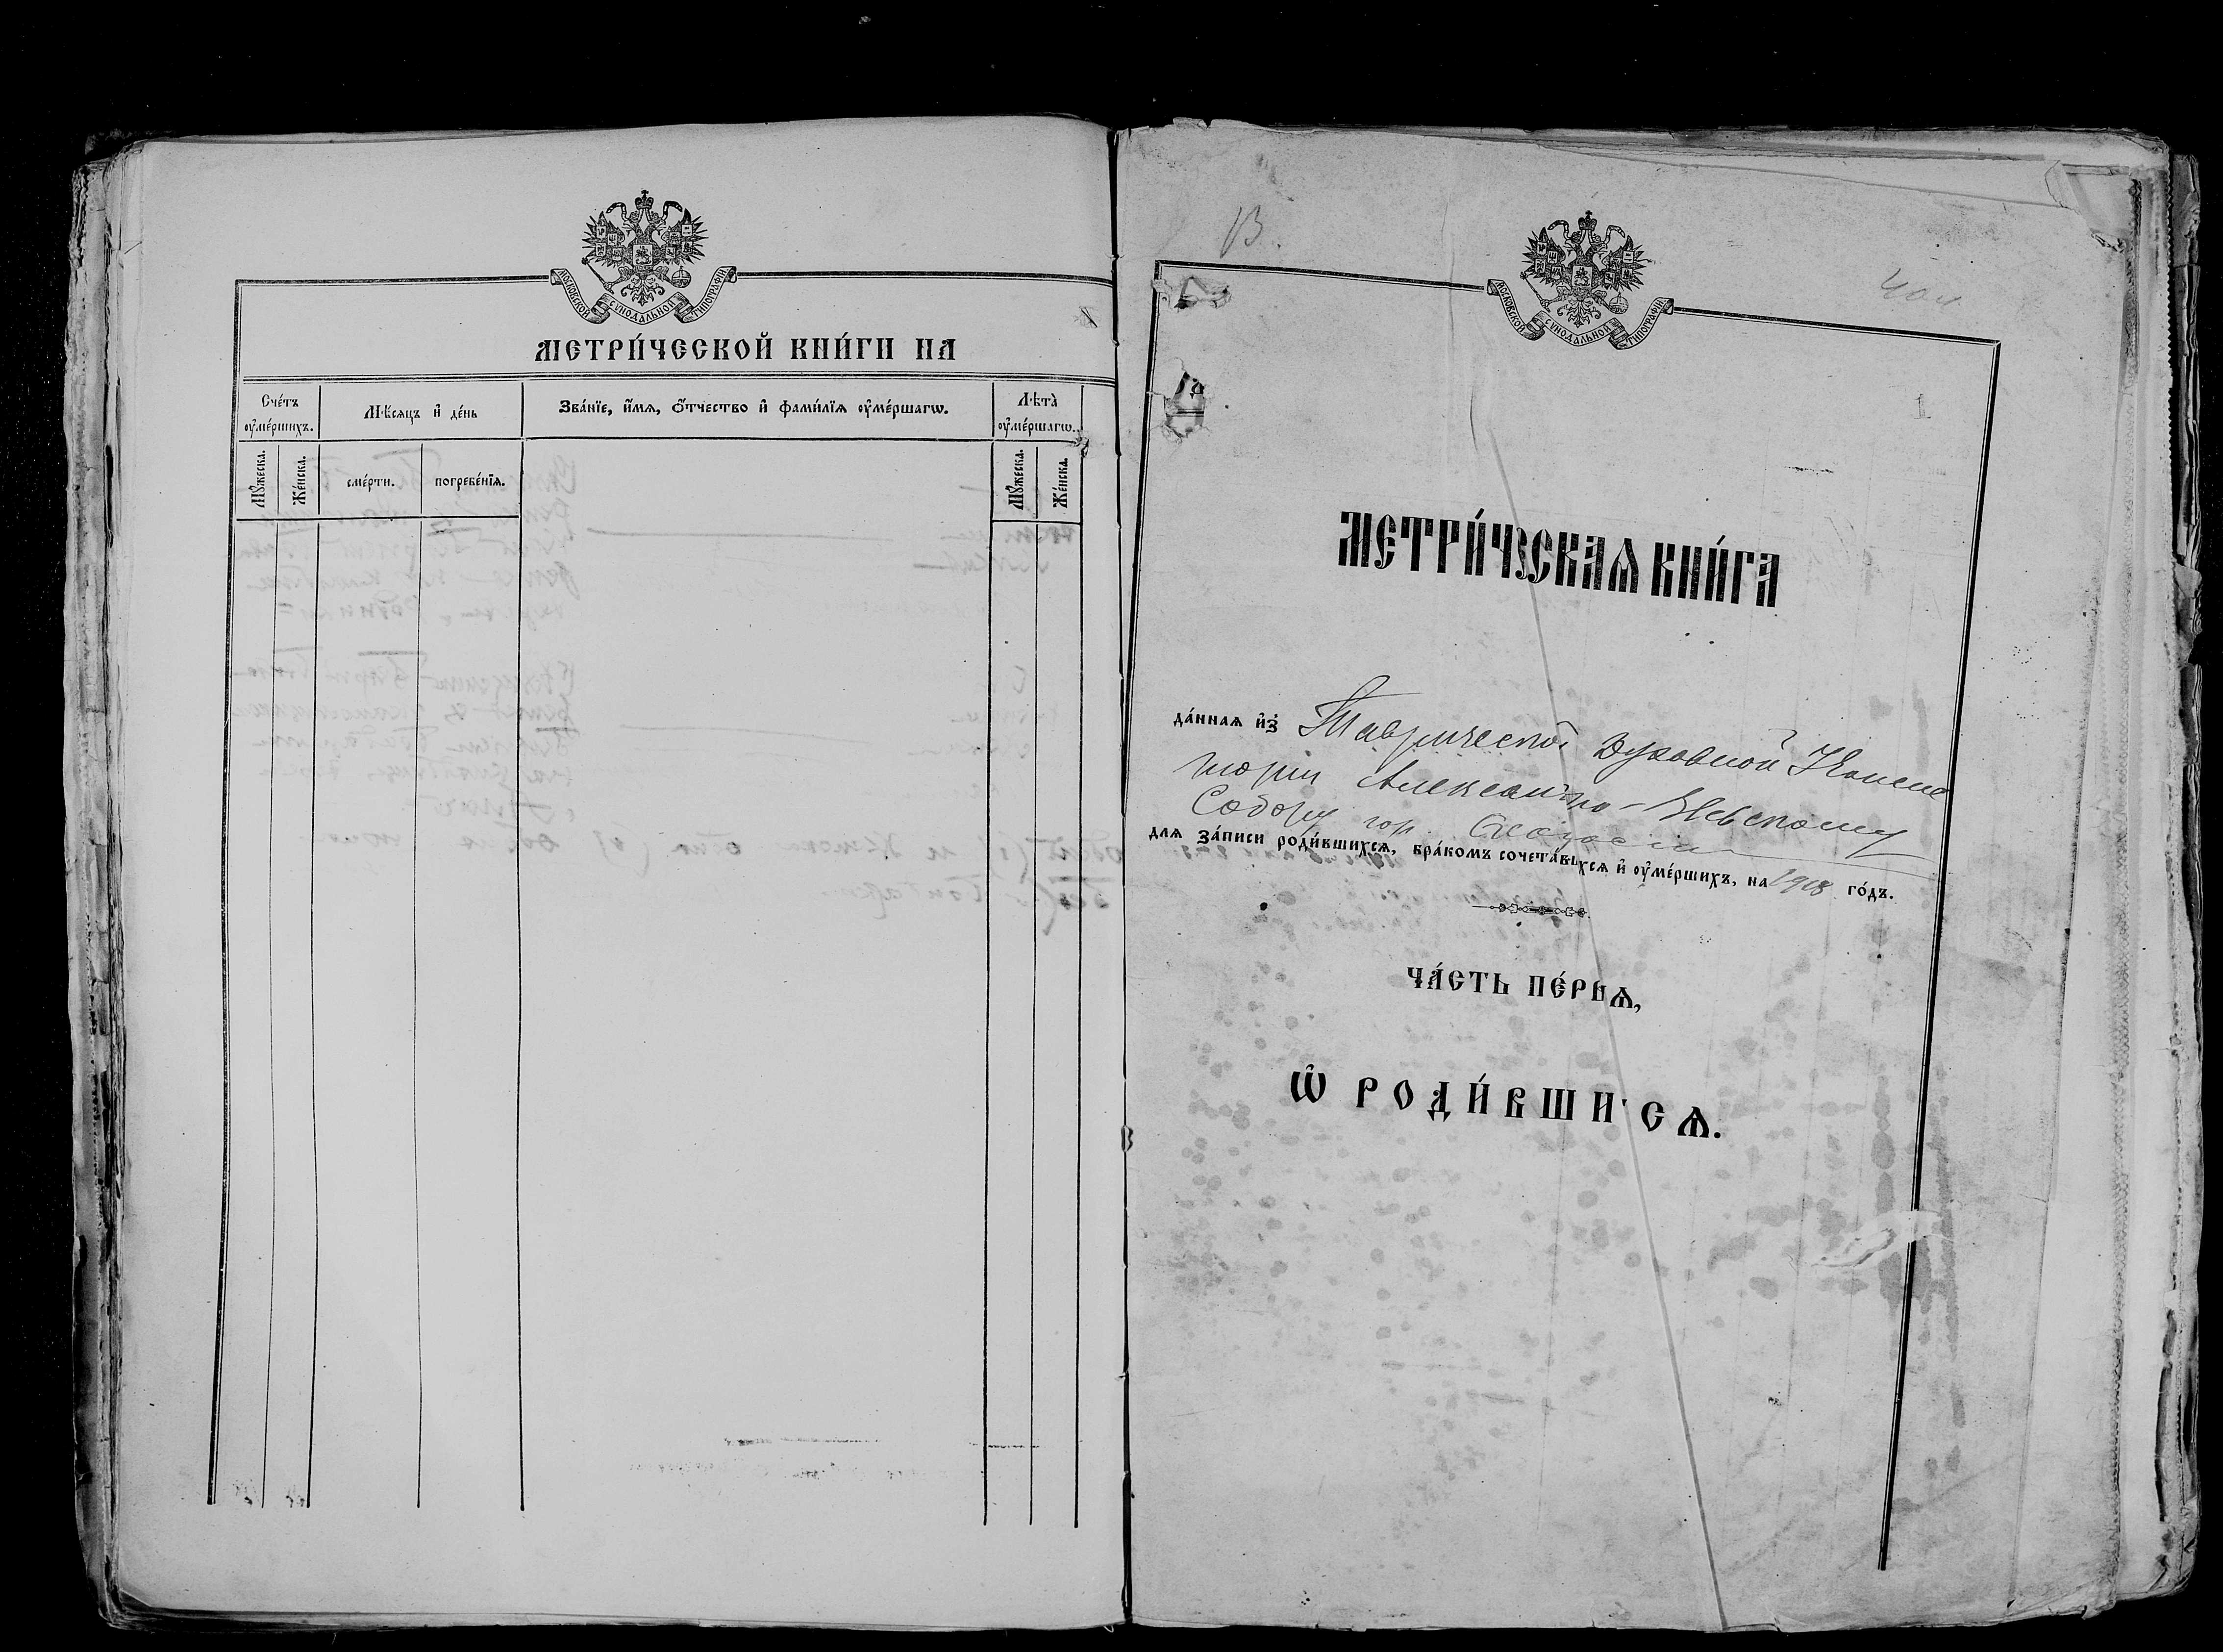 МОСКОВСКОЙ СѴНОДАЛЬНОЙ ТИПОГРАФІИ
МЕТРИ́ЧЕСКОЙ КНИ́ГИ НА
Сче́тъ ᲂу҆ме́ршихъ.
Мѣ́сяцъ и҆ де́нь
Зва́нїе, и҆́мѧ, ѻ҆́тчество и҆ фами́лїѧ ᲂу҆ме́ршагѡ.
Лѣта̀ ᲂу҆ме́ршагѡ.
Мꙋ́жеска.
Же́нска.
сме́рти.
погребе́нїѧ.
Мꙋ́жеска.
Же́нска.
В.
МОСКОВСКОЙ СѴНОДАЛЬНОЙ ТИПОГРАФІИ
1
МЕТРИ́ЧЕСКАѦ КНИ́ГА
да́ннаѧ и҆з̾ Таврической Духовной Консис
торіи Александро-Невскому
Собору гор. Ѳеодосіи
длѧ за́писи роди́вшихсѧ, бра́комъ сочета́вшихсѧ и҆ ᲂу҆ме́ршихъ, на 1918 го́дъ.
ЧА́СТЬ ПЕ́РВАѦ,
Ѡ҆ РОДИ́ВШИХСѦ.